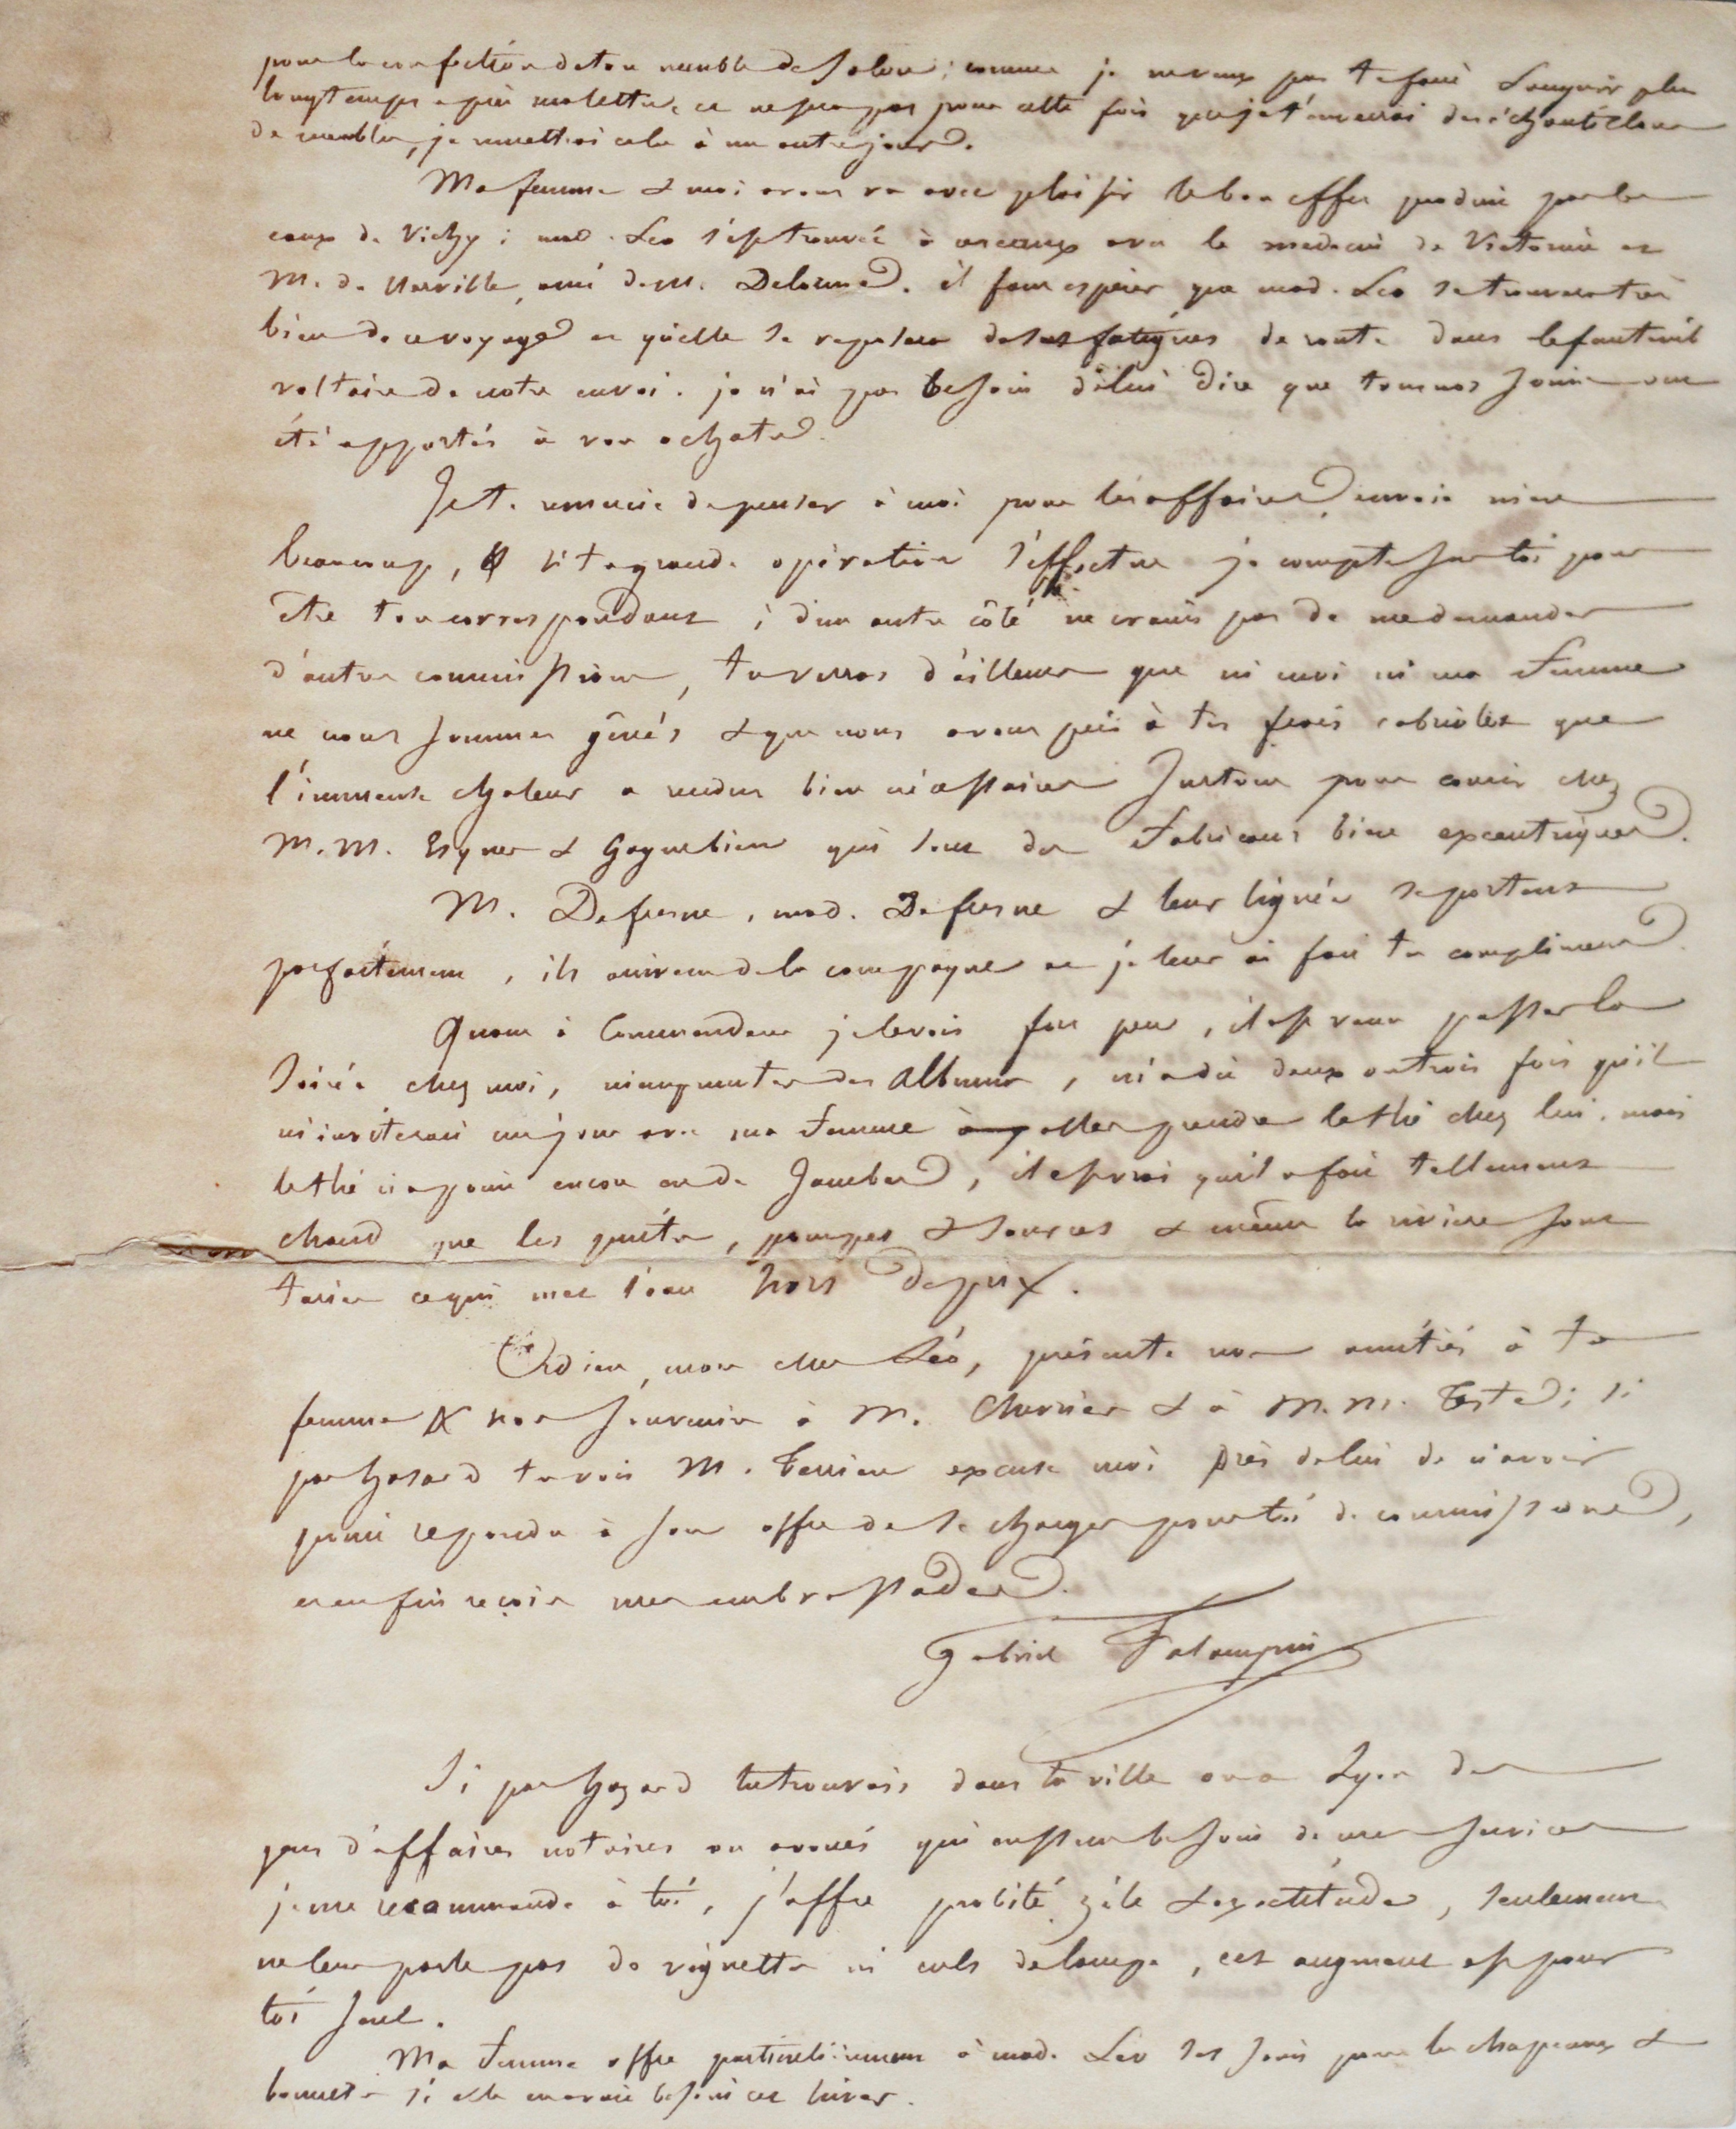 pour la confection de ton meuble de salon ; comme je ne veux pas te faire languir plus
longtemps après ma lettre, ce ne sera pas pour cette fois que je t'enverrai des échantillons
de meubles, je remettrai cela à un autre jour.
Ma femme & moi avons vu avec plaisir le bon effet produit par les
eaux de Vichy ; mad. Léo s'est trouvée à ces eaux avec le medecin de Victorine et
M. de Merville, ami de M. Delorme. il faut espérer que mad. Léo se trouvera très
bien de ce voyage et qu'elle se reposera de ses fatigues de route dans le fauteuil
voltaire de notre envoi. je n'ai pas besoin de lui dire que tous nos soins ont
été apportés à vos achats.
Je te remercie de penser à moi pour les affaires, envoie m'en
beaucoup, & si ta grande opération s'effectue je compte sur toi pour
être ton correspondant ; d'un autre côté ne crains pas de me demander
d'autres commissions, tu verras d'ailleurs que ni moi ni ma femme
ne nous sommes gênés & que nous avons pris à tes frais cabriolet que
l'immense chaleur a rendu bien nécessaire surtout pour courir chez
M.M. & qui sont des fabricans bien excentriques.
M. Defresne, mad. Defresne & leur lignée se portent
parfaitement, ils arrivent de la campagne et je leur ai fait tes complimens.
Quant à Commandeur je le vois fort peu, il est venu passer la
soirée chez moi, m'augmenter des albums, m'a dit deux ou trois fois qu'il
m'inviterait un jour avec ma femme à aller prendre le thé chez lui, mais
le thé n'a point encore eu de , il est vrai qu'il a fait tellement
chaud que les puits, pompes & sources & même la rivière sont
taries ce qui met l'eau hors de prix.
Adieu, mon cher Léo, présente nos amitiés à ta
femme & nos souvenirs à M. Charrier & à M.M. Teste ; si
par hasard tu vois M. Terrier excuse moi près de lui de n'avoir
point repondu à son offre de se charger pour toi de commissions,
et enfin reçois mes embrassades.
Gabriel Falampin
Si par hazard tu trouvais dans ta ville ou a Lyon des
gens d'affaires notaires ou avoués qui eussent besoin de mes services
je me recommande à toi, j'offre probité, zèle & exactitude, seulement
ne leur parle pas de vignettes ni culs de lampe, cet argument est pour
toi seul.
Ma femme offre particulièrement à mad. Léo ses soins pour les chapeaux &
bonnets si elle en avait besoin cet hiver.